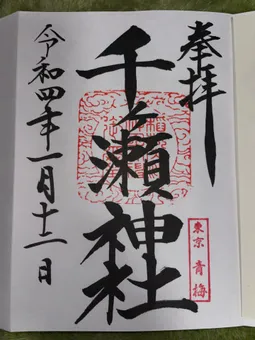 奉拝
東京 青梅
千ヶ瀬神社
令和四年一月十二日